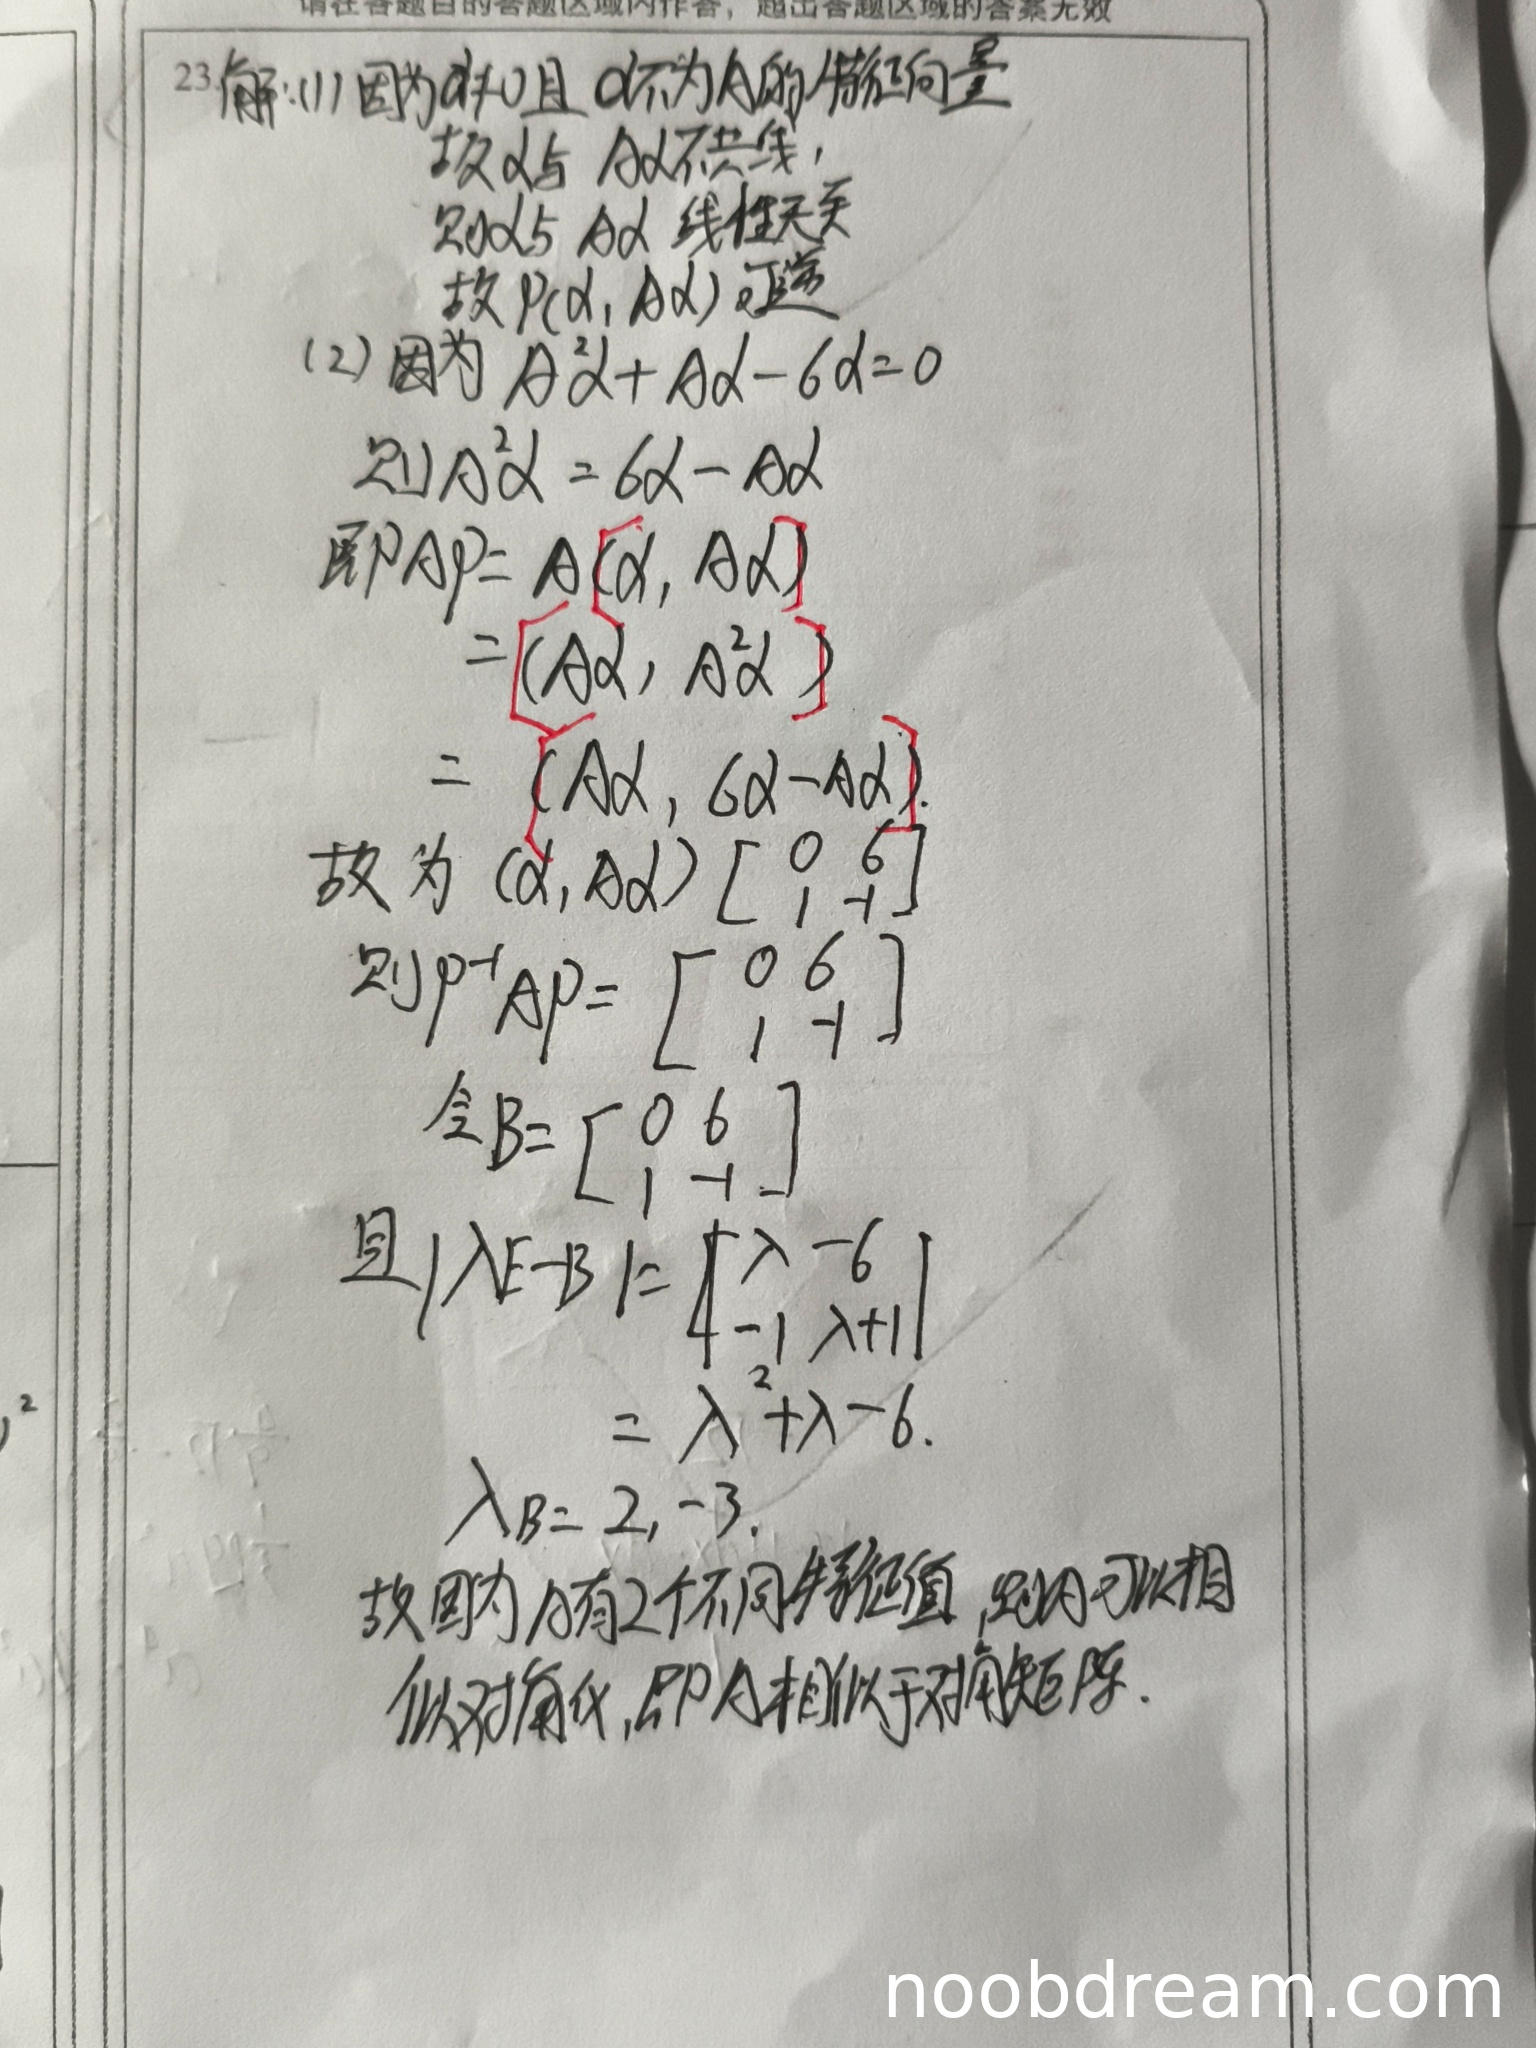 请在各题目的答题区域内作答，超出答题区域的答案无效
23.解:(1)因为α≠0且α不为A的特征向量
故α与Aα不共线,
则α与Aα线性无关
故P(α, Aα)可逆
(2)因为A²α+Aα-6α=0
则A²α=6α-Aα
即AP=A(α, Aα)
=(Aα, A²α)
=(Aα, 6α-Aα).
故为(α, Aα)[0 6
1 -1]
则P⁻¹AP=[0 6
1 -1]
令B=[0 6
1 -1]
且|λE-B|=|λ -6
-1 λ+1|
=λ²+λ-6.
λB=2, -3.
故因为A有2个不同特征值,则A可以相
似对角化,即A相似于对角矩阵.
noobdream.com